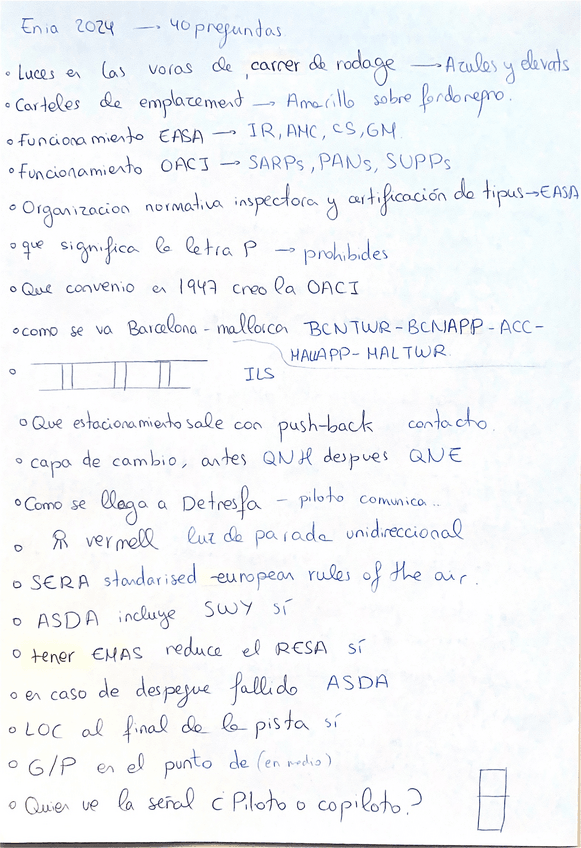 Enia 2024 → 40 preguntas
• Luces en las voras de carrer de rodage → Azules y elevats
• Carteles de emplacement → Amarillo sobre fondo negro.
• funcionamiento EASA → IR, AMC, CS, GM
• funcionamiento OACI → SARPs, PANs, SUPPs
• Organizacion normativa inspectora y certificación de tipus → EASA
• que significa la letra P → prohibides
• Que convenio en 1947 creo la OACI
• como se va Barcelona - mallorca BCNTWR - BCNAPP - ACC -
MALLAPP - MALTWR
• ILS
• Que estacionamiento sale con push-back contacto.
• capa de cambio, antes QNH despues QNE
• Como se llega a Detresfa - piloto comunica..
• vermell luz de parada unidireccional
• SERA standarised - european rules of the air.
• ASDA incluye SWY sí
• tener EMAS reduce el RESA sí
• en caso de despegue fallido ASDA
• LOC al final de la pista sí
• G/P en el punto de (en medio)
• Quien ve la señal ¿Piloto o copiloto?